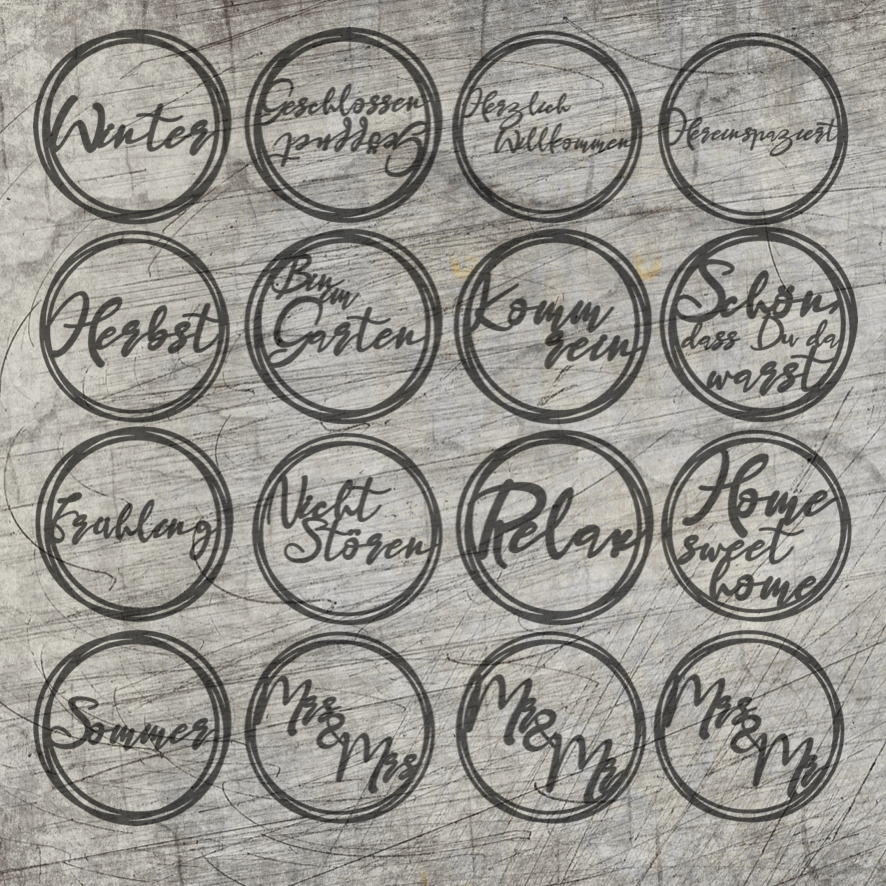 Winter
Geschlossen
Geöffnet
Herzlich
Willkommen
Hereinspaziert
Herbst
Bin
im
Garten
Komm
rein
Schön,
dass Du da
warst
Frühling
Nicht
Stören
Relax
Home
sweet
home
Sommer
Mrs
&
Mrs
Mr
&
Mr
Mrs
&
Mr